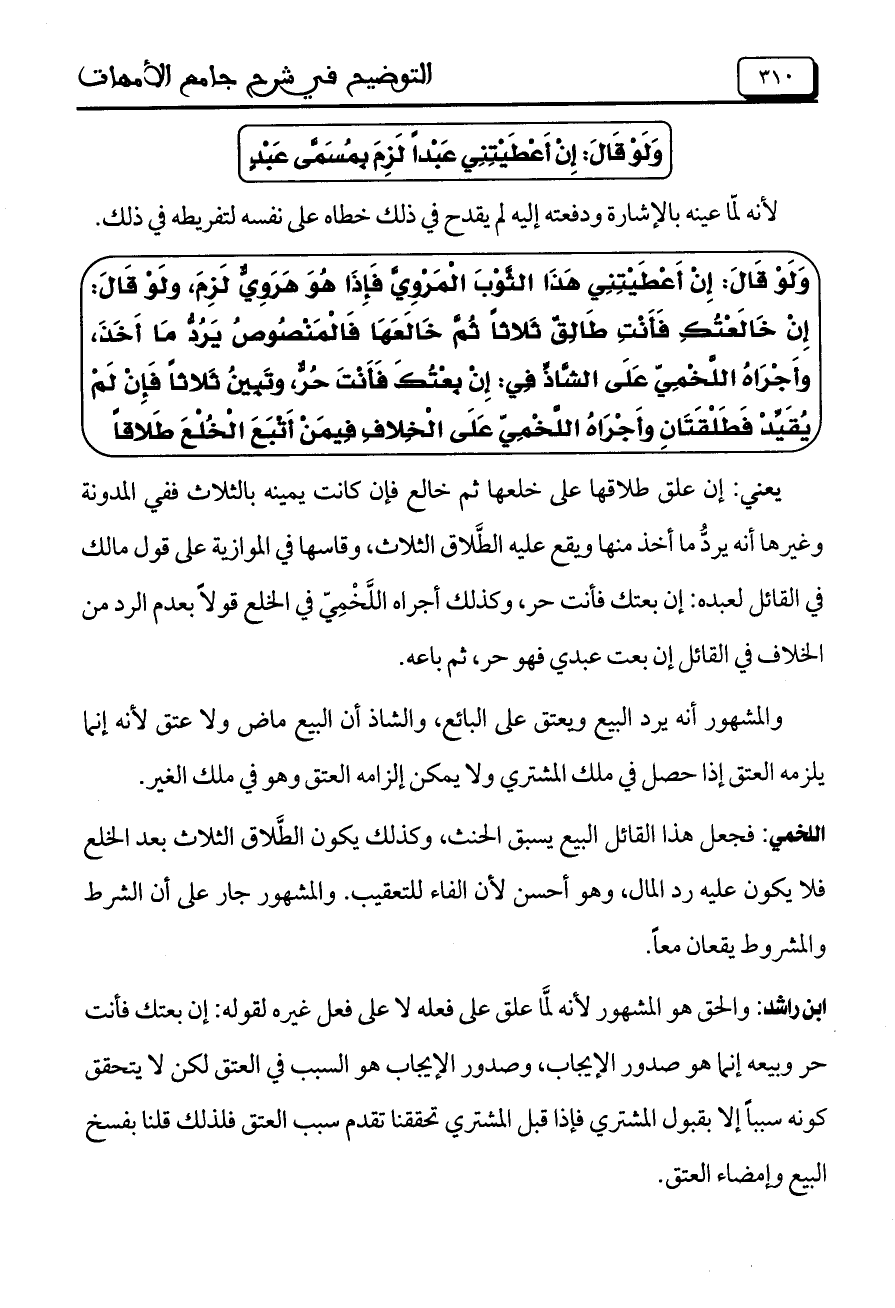 ٣١٠
التوضيح في شرح جامع الأمهات
وَلَوْ قَالَ: إِنْ أَعْطَيْتِنِي عَبْداً لَزِمَ بِمُسَمَّى عَبْدٍ
لأنه لمّا عينه بالإشارة ودفعته إليه لم يقدح في ذلك خطاه على نفسه لتفريطه في ذلك.
وَلَوْ قَالَ: إِنْ أَعْطَيْتِنِي هَذَا الثَّوْبَ الْمَرْوِيَّ فَإِذَا هُوَ هَرَوِيٌّ لَزِمَ، ولَوْ قَالَ:
إِنْ خَالَعْتُكِ فَأَنْتِ طَالِقٌ ثَلاثاً ثُمَّ خَالَعَهَا فَالْمَنْصُوصُ يَرُدُّ مَا أَخَذَ،
وأَجْرَاهُ اللَّخْمِيّ عَلَى الشَّاذِّ فِي: إِنْ بِعْتُكَ فَأَنْتَ حُرٌّ، وتَبِينُ ثَلاثاً فَإِنْ لَمْ
يُقَيِّدْ فَطَلْقَتَانِ وأَجْرَاهُ اللَّخْمِيّ عَلَى الْخِلافِ فِيمَنْ أَتْبَعَ الْخُلْعَ طَلاقاً
يعني: إن علق طلاقها على خلعها ثم خالع فإن كانت يمينه بالثلاث ففي المدونة
وغيرها أنه يردُّ ما أخذ منها ويقع عليه الطَّلاق الثلاث، وقاسها في الموازية على قول مالك
في القائل لعبده: إن بعتك فأنت حر، وكذلك أجراه اللَّخْمِيّ في الخلع قولاً بعدم الرد من
الخلاف في القائل إن بعت عبدي فهو حر، ثم باعه.
والمشهور أنه يرد البيع ويعتق على البائع، والشاذ أن البيع ماض ولا عتق لأنه إنما
يلزمه العتق إذا حصل في ملك المشتري ولا يمكن إلزامه العتق وهو في ملك الغير.
اللخمي: فجعل هذا القائل البيع يسبق الحنث، وكذلك يكون الطَّلاق الثلاث بعد الخلع
فلا يكون عليه رد المال، وهو أحسن لأن الفاء للتعقيب. والمشهور جار على أن الشرط
والمشروط يقعان معاً.
ابن راشد: والحق هو المشهور لأنه لمَّا علق على فعله لا على فعل غيره لقوله: إن بعتك فأنت
حر وبيعه إنما هو صدور الإيجاب، وصدور الإيجاب هو السبب في العتق لكن لا يتحقق
كونه سبباً إلا بقبول المشتري فإذا قبل المشتري تحققنا تقدم سبب العتق فلذلك قلنا بفسخ
البيع وإمضاء العتق.